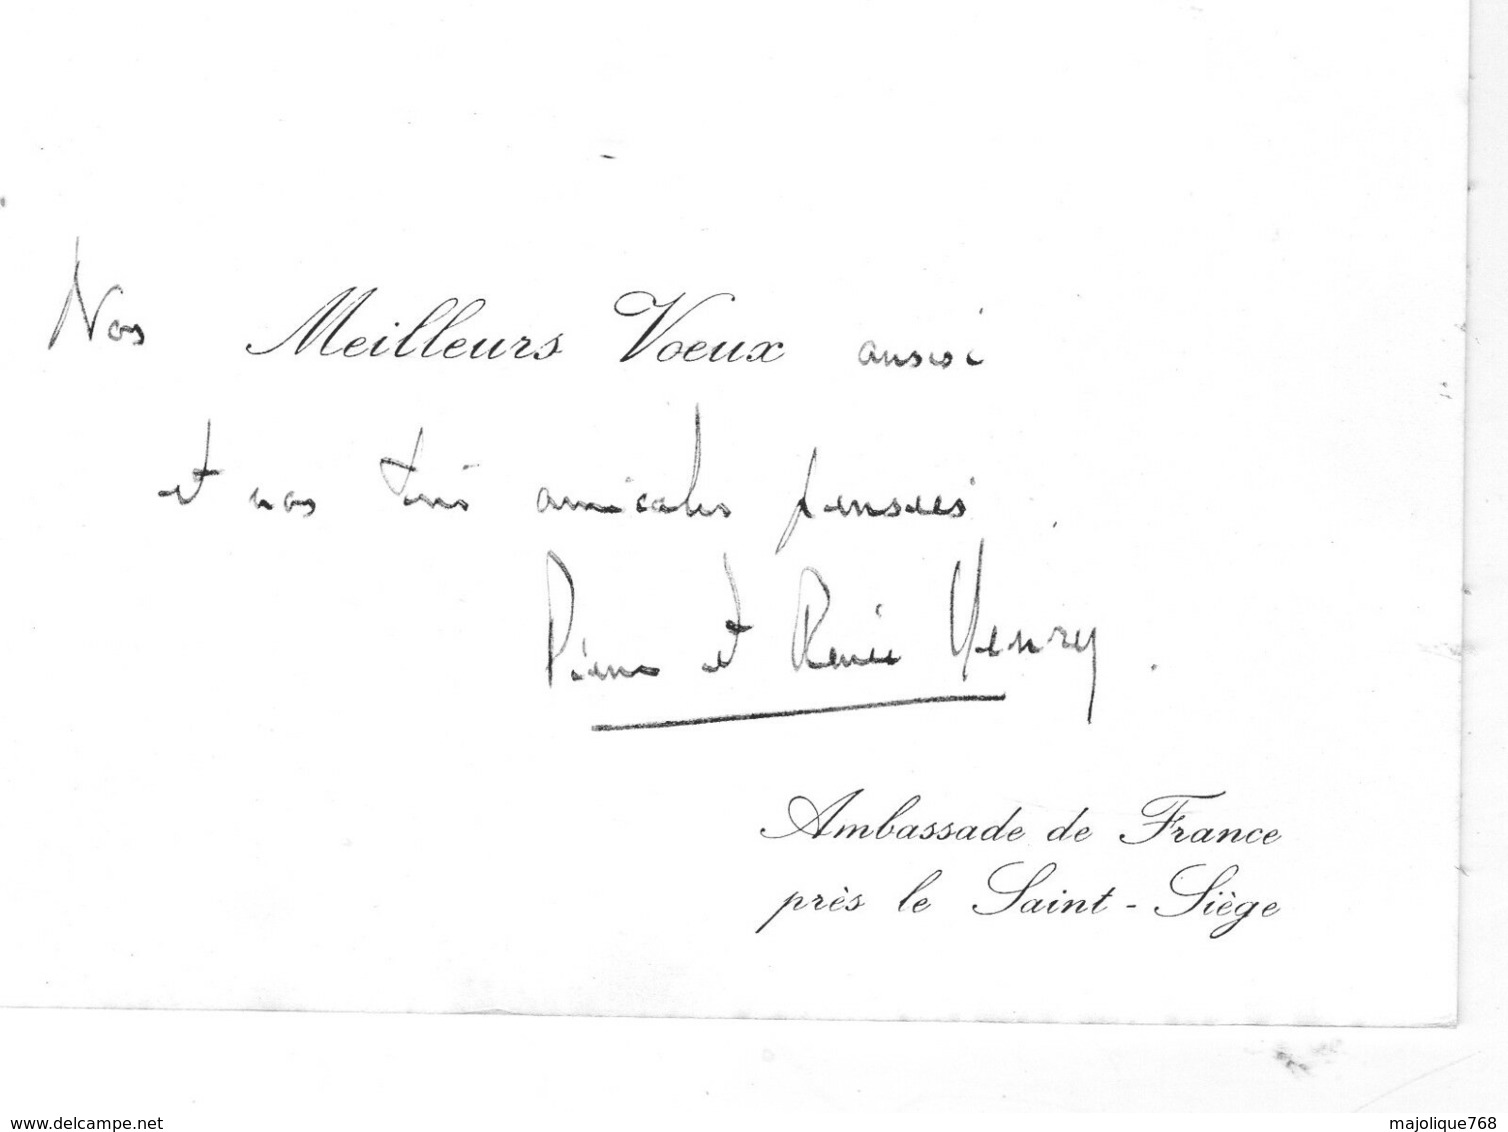 Nos Meilleurs Voeux aussi
et nos très amicales pensées.
Pierre et Renée Henry.
Ambassade de France
près le Saint-Siège
www.delcampe.net
majolique768